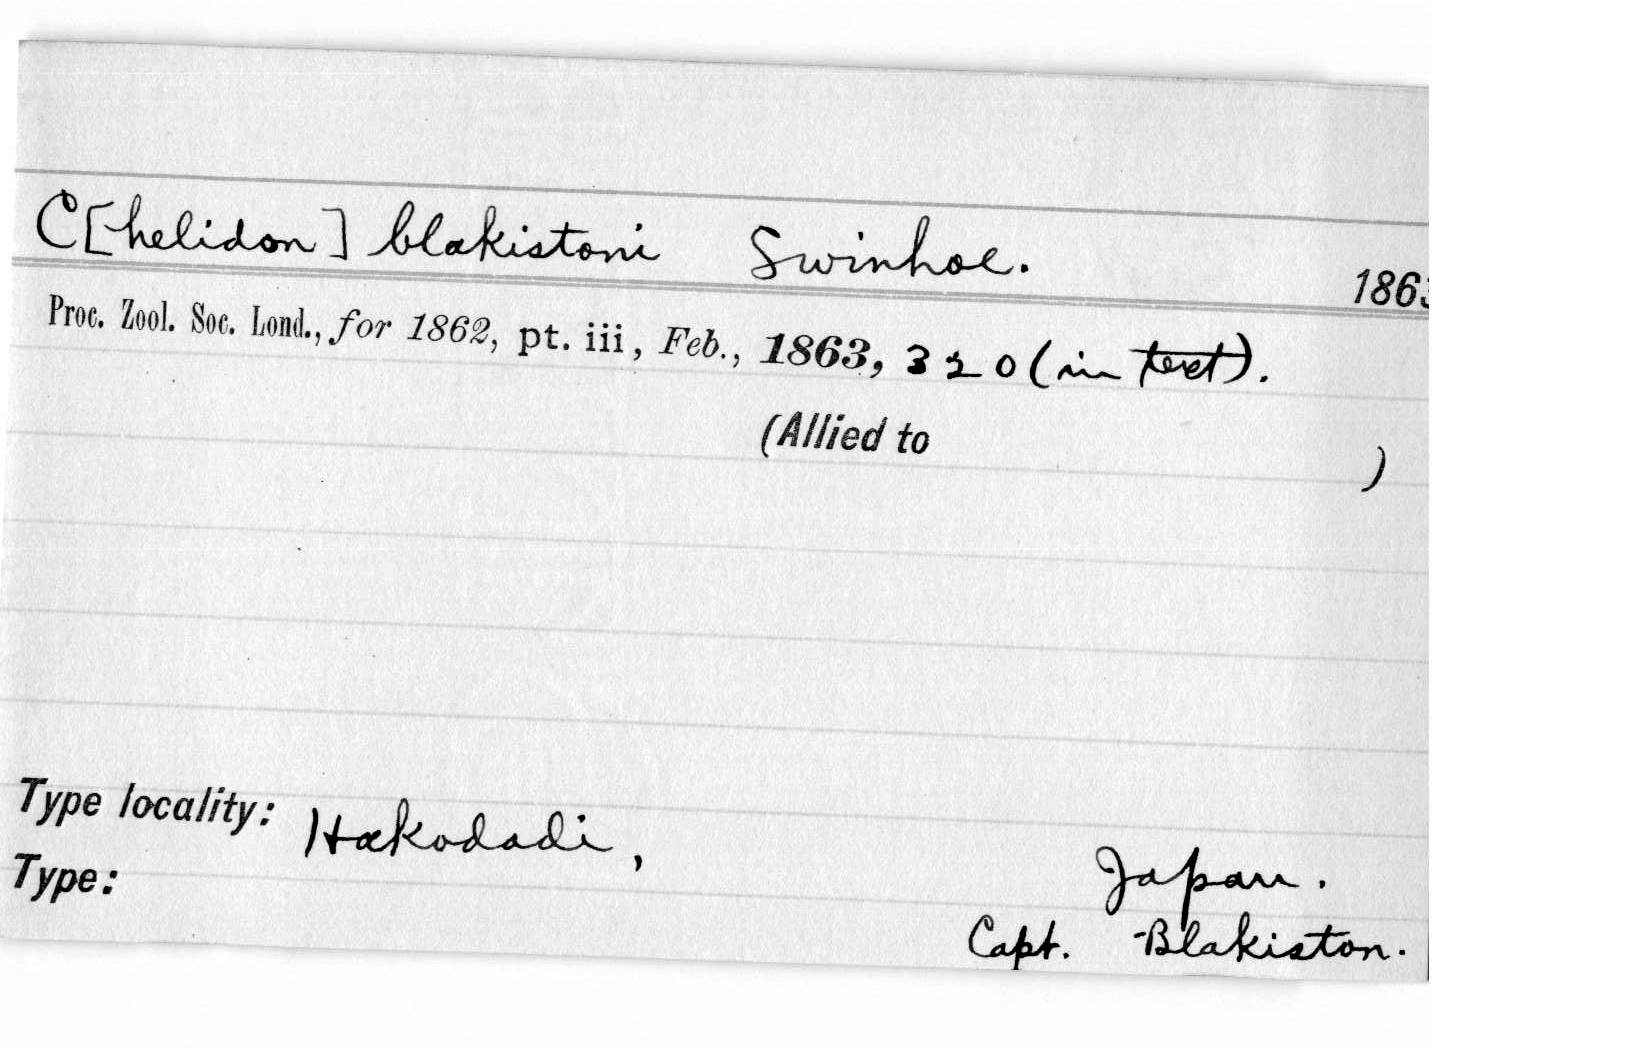 C[helidon] blakistoni Swinhoe. 1863
Proc. Zool. Soc. Lond., for 1862, pt. iii, Feb., 1863, 320 (in text).
(Allied to )
Type locality: Hakodadi, Japan.
Type: Capt. Blakiston.